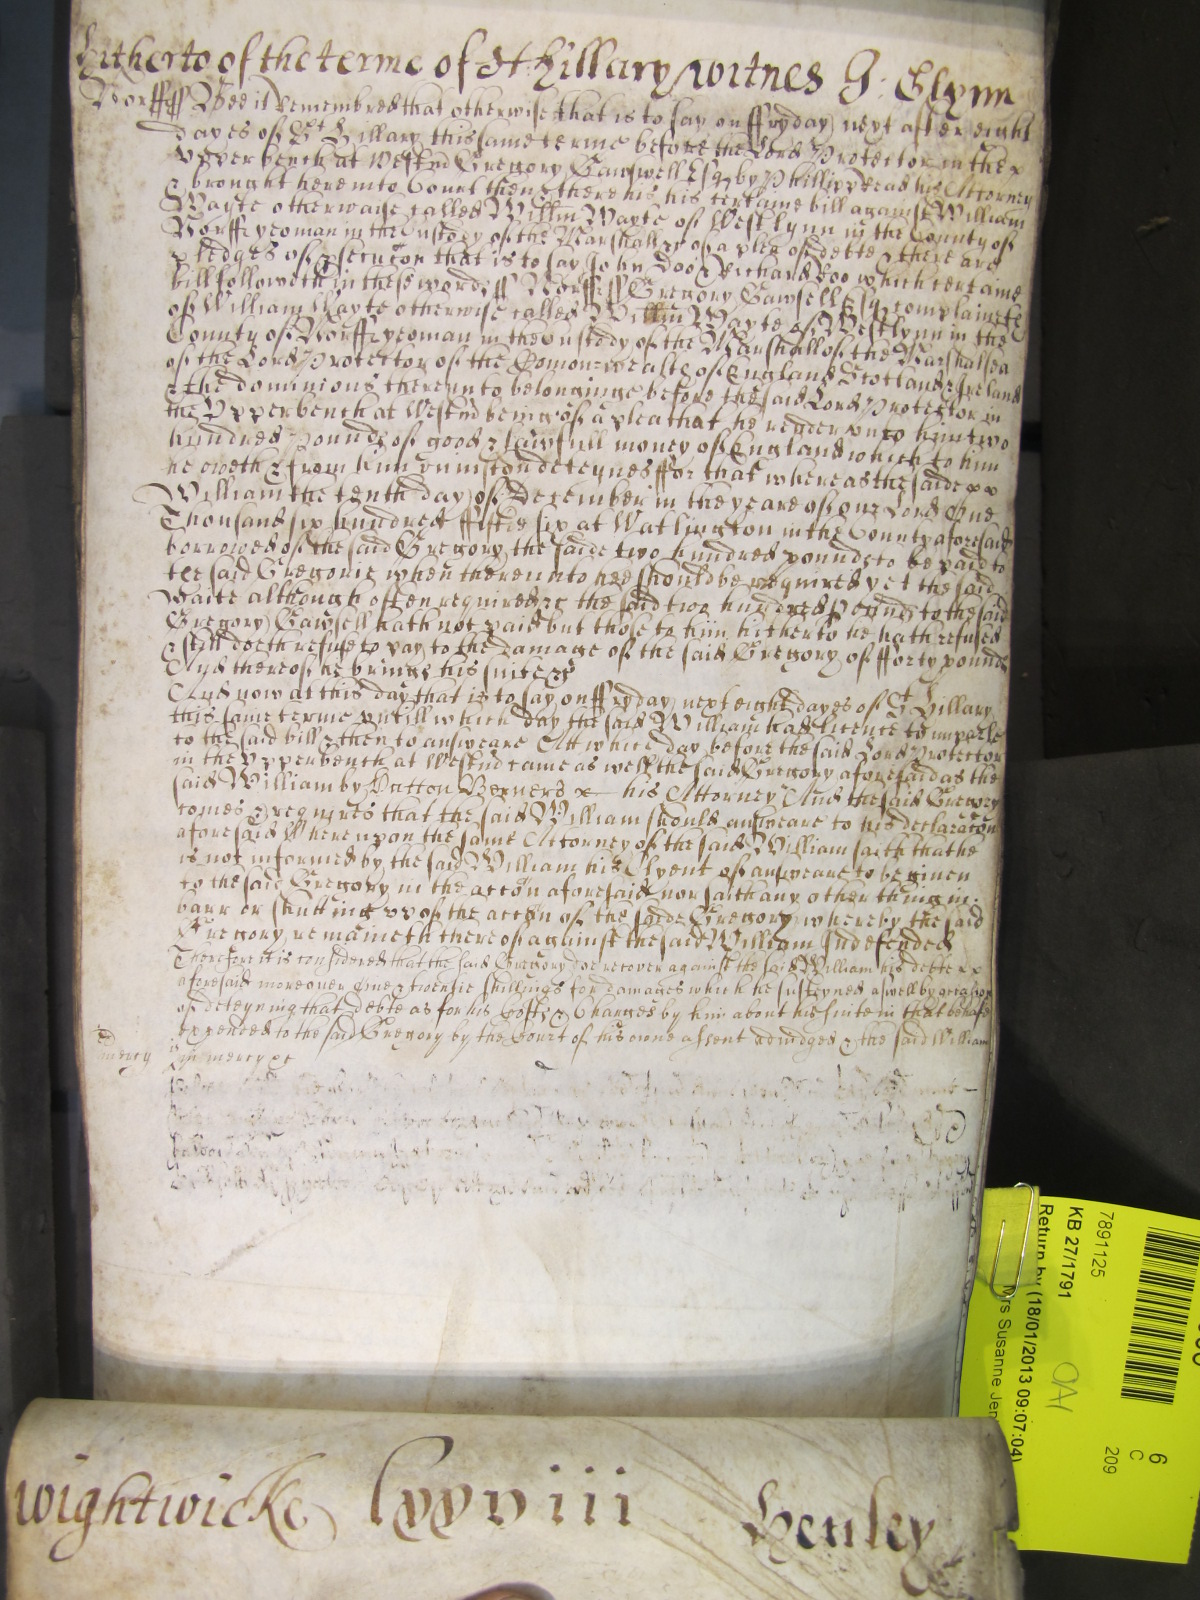 hitherto of the terme of St Hillary witnes J: Glynn
Norff ss Bee it remembred that otherwise that is to say on ffryday next after eight
dayes of St Hillary this same terme before the Lord Protector in the x
upper bench at Westmr Gregory Gawsell Esqr by Phillipp Read his Attorney
& brought here into Court then & there his certaine bill against William
Wayte otherwaise called Willm Wayte of West Lynn in the County of
Norff yeoman in the custody of the Marshall &c of a plea of dette & there are
pledges of psecucon that is to say John Doo & Richard Roo which certaine
bill followeth in these words ss Norff ss Gregory Gawsell Esqr complaineth
of William Wayte otherwise called Willm Wayte of West Lynn in the
County of Norff yeoman in the custody of the Marshall of the Marshalsea
of the Lord Protector of the Comonwealth of England Scotland & Ireland
& the dominions thereunto belonginge before the said Lord Protector in
the Upper bench at Westmr being of a plea that he render unto him two
hundred pounds of good & lawfull money of England which to him
he oweth & from him uniustly deteynes ffor that whereas the saide xx
William the tenth day of December in the yeare of our Lord One
Thousand six hundred ffiftie six at Watlington in the County aforesaid
borrowed of the said Gregory the saide two hundred pounds to be paid to
the said Gregorie when thereunto hee should be required yet the said
Waite although often required &c the said two hundred pounds to the said
Gregory Gawsell hath not paid but those to him hitherto he hath refused
& still doeth refuse to pay to the damage of the said Gregory of fforty pounds
And thereof he brings his suite &c
And now at this day that is to say on ffryday next eight dayes of St Hillary
this same terme untill which day the said William had licence to imparle
to the said bill & then to answeare Att which day before the said Lord Protector
in the Upper bench at Westmr came as well the said Gregory aforesaid as the
said William by Dutton Berners x his Attorney And the said Gregory
comes & requires that the said William should answeare to his declaracon
aforesaid Whereupon the same Attorney of the said William saith that he
is not informed by the said William his Clyent of answeare to be given
to the said Gregory in the accon aforesaid nor saith any other thing in
barr or shutting up of the accon of the saide Gregory whereby the said
Gregory remaineth thereof against the said William Indefended
Therefore it is considered that the said Gregory doe recover against the said William his debte xx
aforesaid moreover one & twentie shillings for damages which he susteyned aswell by occasion
of deteyning that debte as for his Costs & Charges by him about his suite in that behalfe
expended to the said Gregory by the Court of his owne assent adiudged & the said William
mercy is in mercy &c
wightwicke lxxviii Henley
7891125
KB 27/1791
Return by (18/01/2013 09:07:04)
Mrs Susanne Jen
OA1
6
C
209